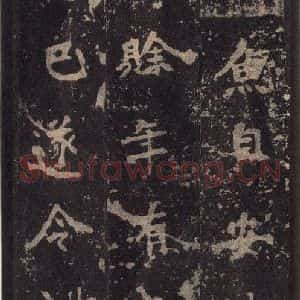 魚自安
賒年有
已遂令
Shufawang.CN